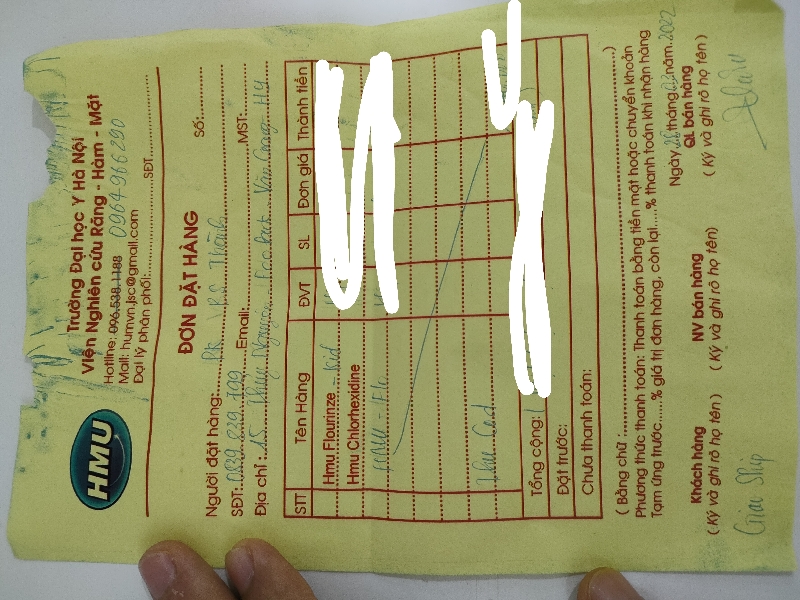 HMU
Trường Đại học Y Hà Nội
Viện Nghiên cứu Răng - Hàm - Mặt
Hotline: 096.538.1188 0964966290
Mail: humvn.jsc@gmail.com
Đại lý phân phối:..........SĐT..........
ĐƠN ĐẶT HÀNG
Số:..........
Người đặt hàng: PK VRS Thành
SĐT: 0839 239 199 Email:..........MST:..........
Địa chỉ: 15 Thụy Nguyên Ecopark Văn Giang - HY
STT Tên Hàng ĐVT SL Đơn giá Thành tiền
Hmu Flourinze - Kid
Hmu Chlorhexidine
Tổng cộng:
Đặt trước:
Chưa thanh toán:
( Bằng chữ :..........)
Phương thức thanh toán: Thanh toán bằng tiền mặt hoặc chuyển khoản
Tạm ứng trước.....% giá trị đơn hàng, còn lại.....% thanh toán khi nhận hàng
Ngày 26 tháng 02 năm. 2022
Khách hàng NV bán hàng QL bán hàng
( Ký và ghi rõ họ tên ) ( Ký và ghi rõ họ tên) ( Ký và ghi rõ họ tên )
Giao Ship